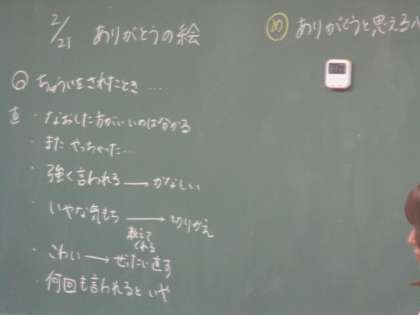 2/21 ありがとうの絵
め ありがとうと思える
◎ ちゅういをされたとき…
直 ・なおした方がいいのは分かる
・またやっちゃった…
・強く言われる → かなしい
・いやな気もち → 切りかえ
教えてくれる
・こわい → ぜったい直す
・何回も言われるといや